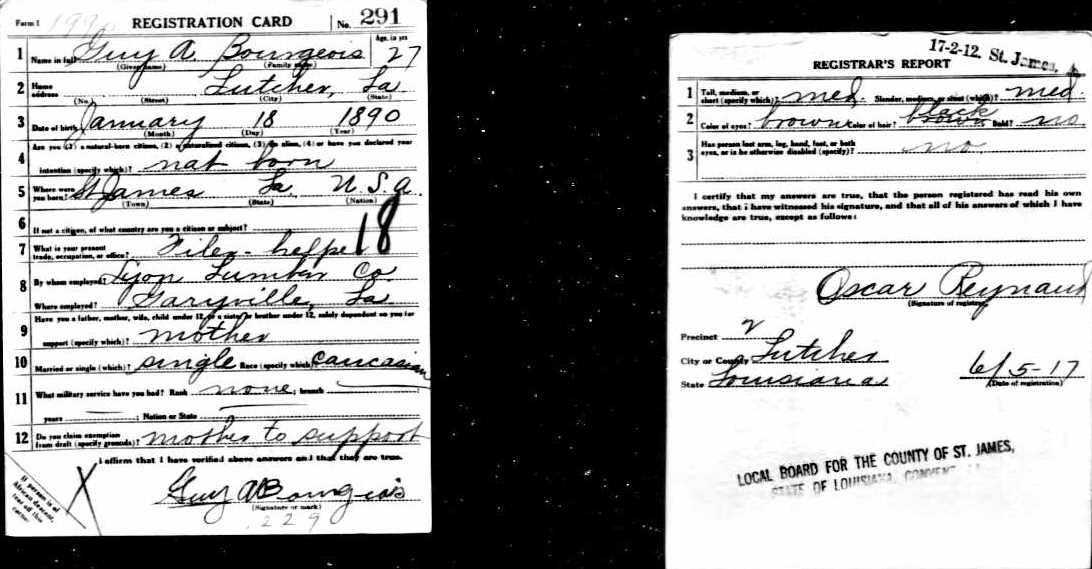 Form 1 199 REGISTRATION CARD No. 291
1 Name in full Guy A. Bourgeois Age, in yrs 27
(Given name) (Family name)
2 Home address Lutcher, La
(No.) (Street) (City) (State)
3 Date of birth January 18 1890
(Month) (Day) (Year)
4 Are you (1) a natural-born citizen, (2) a naturalized citizen, (3) an alien, (4) or have you declared your
intention (specify which)? nat born
5 Where were you born? St James La, U.S.A.
(Town) (State) (Nation)
6 If not a citizen, of what country are you a citizen or subject?
7 What is your present trade, occupation, or office? Filer-helper 18
8 By whom employed? Lyon Lumber Co
Where employed? Garyville, La
9 Have you a father, mother, wife, child under 12, or a sister or brother under 12, solely dependent on you for
support (specify which)? mother
10 Married or single (which)? single Race (specify which)? Caucasian
11 What military service have you had? Rank none; branch
years ; Nation or State
12 Do you claim exemption from draft (specify grounds)? mother to support
I affirm that I have verified above answers and that they are true.
If person is of African descent, tear off this corner.
X
Guy A Bourgeois
(Signature or mark)
229
17-2-12. St. James,
REGISTRAR'S REPORT
1 Tall, medium, or short (specify which)? med. Slender, medium, or stout (which)? med.
2 Color of eyes? brown Color of hair? black brown Bald? no
3 Has person lost arm, leg, hand, foot, or both
eyes, or is he otherwise disabled (specify)? no
I certify that my answers are true, that the person registered has read his own
answers, that I have witnessed his signature, and that all of his answers of which I have
knowledge are true, except as follows:
Oscar Reynaud
(Signature of registrar)
Precinct 2
City or County Lutcher
State Louisiana 6/5-17
(Date of registration)
LOCAL BOARD FOR THE COUNTY OF ST. JAMES,
STATE OF LOUISIANA, CONVENT